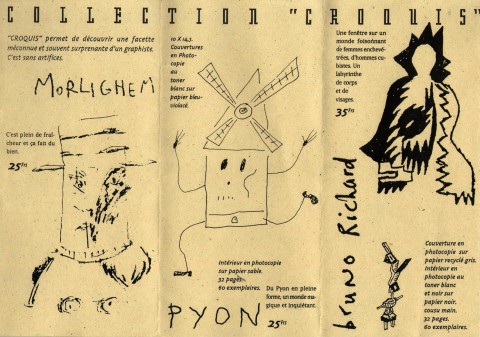 COLLECTION "CROQUIS"
"CROQUIS" permet de découvrir une facette
méconnue et souvent surprenante d'un graphiste.
C'est sans artifices.
MORLIGHEM
C'est plein de fraî-
cheur et ça fait du
bien.
25frs
10 X 14,5.
Couvertures
en Photo-
copie
au
toner
blanc sur
papier bleu-
violacé.
Intérieur en photocopie
sur papier sable.
32 pages.
60 exemplaires.
Du Pyon en pleine
forme, un monde ma-
gique et inquiétant.
25frs
PYON
Une fenêtre sur un
monde foisonnant
de femmes enchevê-
trées, d'hommes cu-
bistes. Un
labyrinthe
de corps
et de
visages.
35frs
bruno Richard
Couverture en
photocopie sur
papier recyclé gris.
Intérieur en
photocopie au
toner blanc
et noir sur
papier noir.
cousu main.
32 pages.
60 exemplaires.